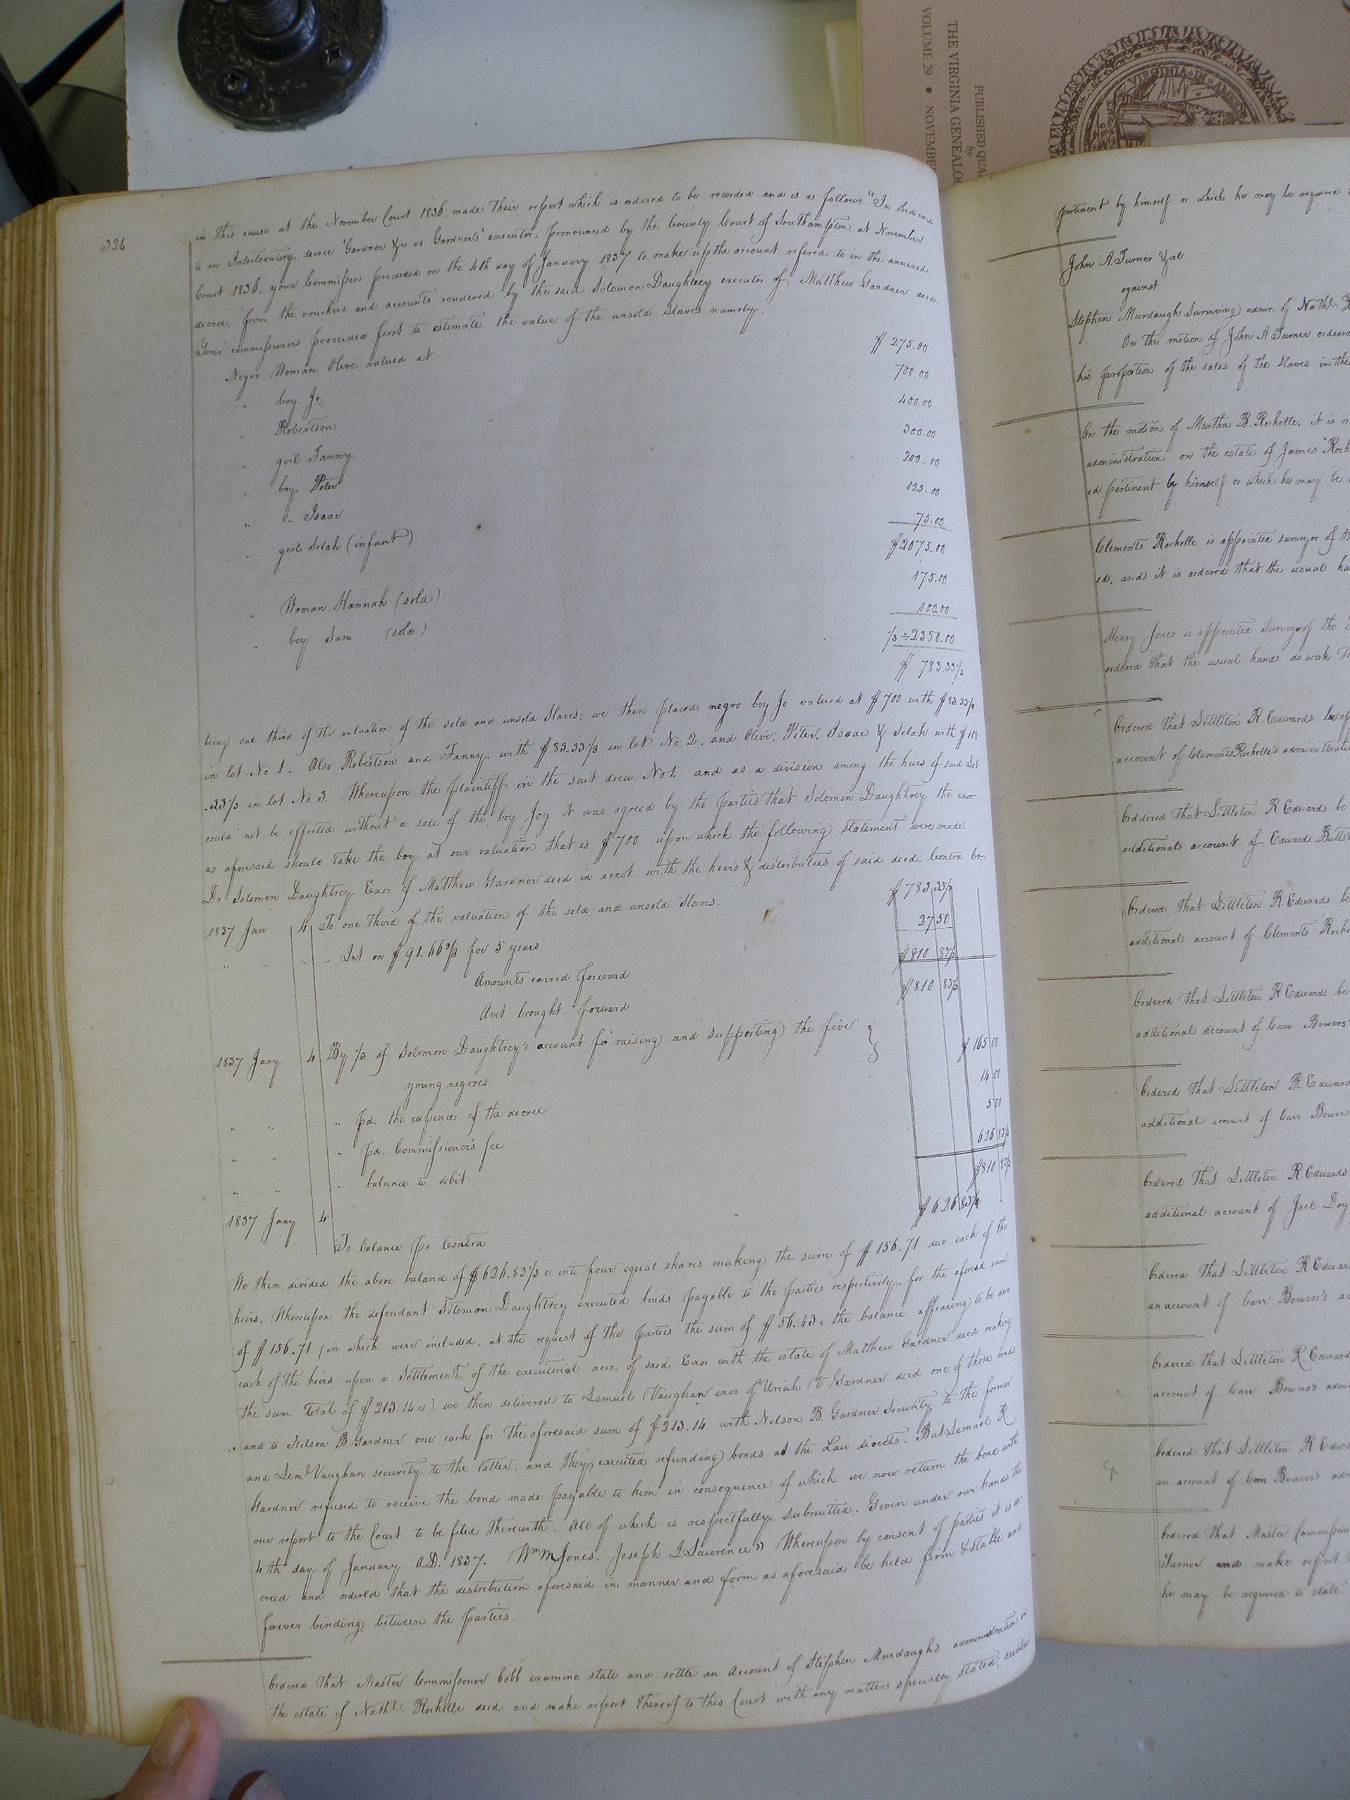 PUBLISHED QUA
by
THE VIRGINIA GENEALOG
VOLUME 29 • NOVEMBE
VIRGINIA
326
in this cause at the November Court 1836, made their report which is ordered to be recorded and is as follows "In Obedience
to an Interlocutory decree 'Gardner &c vs Gardners' executor, pronounced by the County Court of Southampton at November
Court 1836, your Commissrs proceeded on the 4th day of January 1837 to make up the account refered to in the annexed
decree, from the vouchers and accounts rendered by the said Solomon Daughtrey executor of Matthew Gardner decd.
Your commissioners proceeded first to estimate the value of the unsold Slaves namely.
Negro Woman Olive valued at $ 275.00
" boy Jo. 700.00
" Robertson 400.00
" girl Fanny 300.00
" boy Peter 200.00
" " Isaac 125.00
" girl Selah (infant) 75.00
$2075.00
" Woman Hannah (sold) 175.00
" boy Sam (sold) 100.00
⅓ ÷ 2350.00
$ 783.33⅓
being one third of the valuation of the sold and unsold Slaves; we then placed negro boy Jo valued at $700 with $83.33⅓
in lot No 1. Also Robertson and Fanny with $83.33⅓ in lot No 2. and Olive, Peter, Isaac & Selah with $108
.33⅓ in lot No 3. Whereupon the plaintiff in the suit drew No 1. and as a division among the heirs of said
could not be effected without a sale of the boy Joy it was agreed by the parties that Solomon Daughtrey the exor.
as aforesaid should take the boy at our valuation that is $700 upon which the following statement were made
Dr. Solomon Daughtrey Exor of Matthew Gardner decd in accot. with the heirs & distributees of said decd. Contra Cr.
1837 Jan 4 To one third of the valuation of the sold and unsold Slaves. $ 783 33⅓
" " " " Int on $91.66⅔ for 5 years 27 50
Amounts carried forward $810 83⅓
Amt brought forward $810 83⅓
1837 Jany 4 By ⅓ of Solomon Daughtrey's account for raising and supporting the five }
young negroes $ 165 00
" " " pd. the expence of the decree 14 00
" " " pd. Commissioners fee 5 00
" " " balance to debit 626 83⅓
$810 83⅓
1837 Jany 4 To balance pr Contra $ 626 83⅓
We then divided the above balance of $626.83⅓ into four equal shares making the sum of $156.71 due each of the
heirs, Whereupon the defendant Solomon Daughtrey executed bonds payable to the parties respectively for the aforesd sum
of $156.71, in which were included, at the request of the parties the sum of $56.43, the balance appearing to be due
each of the heirs upon a Settlement of the executorial accs. of said Exor with the estate of Matthew Gardner decd. making
the sum total of $213.14 we then delivered to Lemuel Vaughan exor of Uriah V Gardner decd one of those bonds
and to Nelson B Gardner one each for the aforesaid sum of $213.14 with Nelson B. Gardner Security to the former
and Leml Vaughan security to the latter, and they executed refunding bonds as the Law directs. But Lemuel R
Gardner refused to receive the bond made payable to him in consequence of which we now return the bond with
our report to the Court to be filed therewith. All of which is respectfully submitted. Given under our hands the
4th day of January A.D. 1837. Wm M Jones. Joseph L Lawrence" Whereupon by consent of parties it is de
creed and ordered that the distribution aforesaid in manner and form as aforesaid be held firm & stable and
forever binding between the parties.
Ordered that Master Commissioner Cobb examine state and settle an account of Stephen Murdaugh's administration on
the estate of Nathl. Rochelle decd and make report thereof to this Court with any matters specially stated, deemed
pertinent by himself or which he may be required
John A. Turner & al
against
Stephen Murdaugh Surviving admr. of Nathl. R
On the motion of John A Turner ordered
his proportion of the sales of the Slaves in the
On the motion of Martha B. Rochelle, it is
administration on the estate of James Roch
ed pertinent by himself or which he may be
Clements Rochelle is appointed surveyor of th
ed, and it is ordered that the usual ha
Henry Jones is appointed surveyor of the
ordered that the usual hands do work th
Ordered that Littleton R. Edwards
account of Clements Rochelle's administratio
Ordered that Littleton R Edwards be
additional account of Edward Butts
Ordered that Littleton R Edwards be
additional account of Clements Roche
Ordered that Littleton R Edwards be
additional account of Carr Bowers
Ordered that Littleton R Edward
additional account of Carr Bower
Ordered that Littleton R Edwards
additional account of Joel Doy
Ordered that Littleton R Edwar
an account of Carr Bowers's a
Ordered that Littleton R Edward
account of Carr Bowers's adm
Ordered that Littleton R Edwa
an account of Carr Bowers's adm
Ordered that Master Commission
Turner and make report
he may be required to state